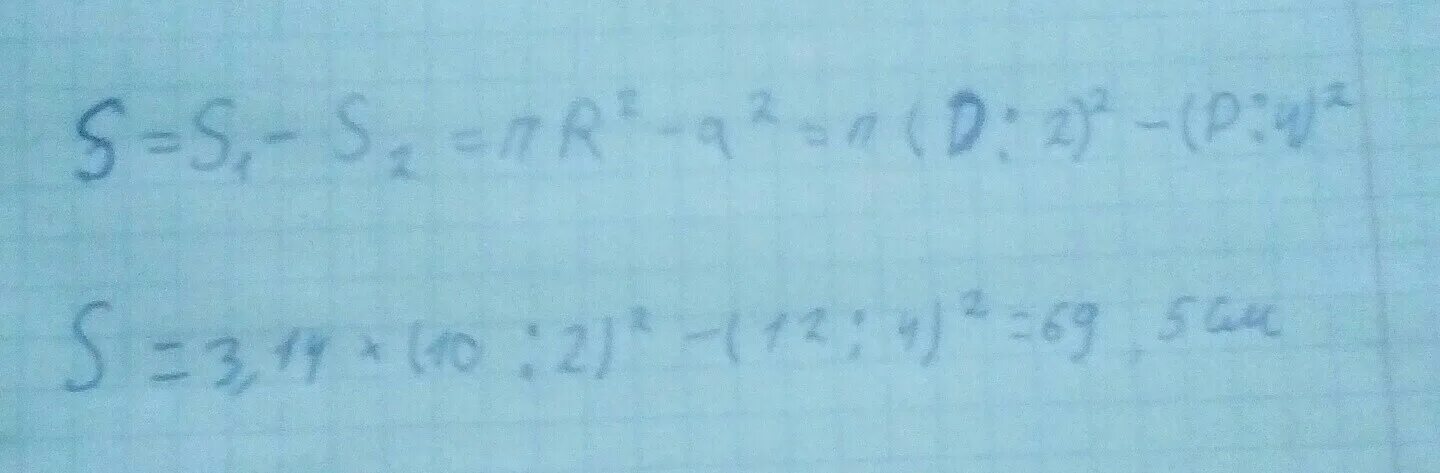 S = S₁ - S₂ = πR² - a² = π(D:2)² - (P:4)²
S = 3,14 × (10:2)² - (12:4)² = 69,5 см